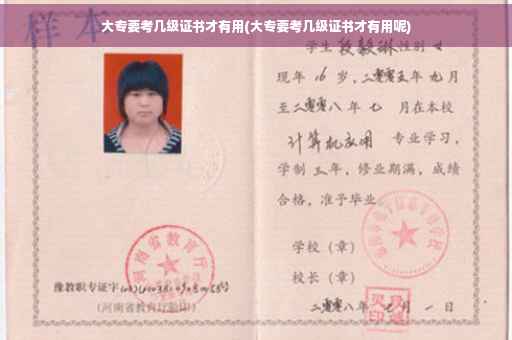 样本
大专要考几级证书才有用(大专要考几级证书才有用呢)
学生段毅琳性别女
现年16岁，二零零五年九月
至二零零八年七月在本校
计算机应用专业学习，
学制三年，修业期满，成绩
合格，准予毕业
学校（章）
校长（章）
二零零八年七月一日
河南省教育厅
豫教职专证字
(河南省教育厅验印)